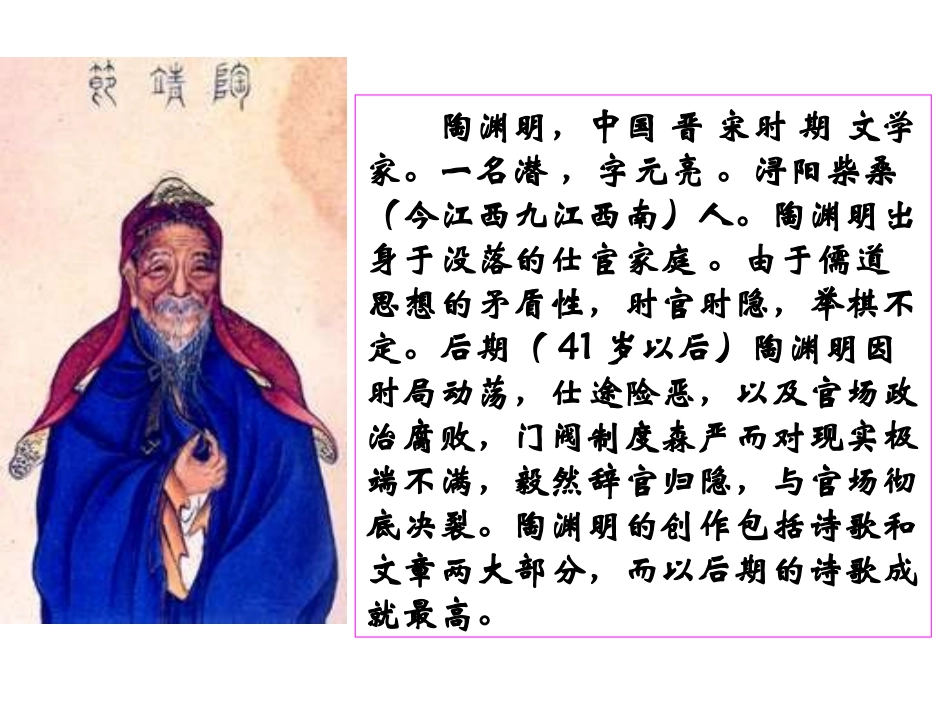 陶靖節
陶渊明，中国晋宋时期文学
家。一名潜，字元亮。浔阳柴桑
（今江西九江西南）人。陶渊明出
身于没落的仕宦家庭。由于儒道
思想的矛盾性，时官时隐，举棋不
定。后期（41岁以后）陶渊明因
时局动荡，仕途险恶，以及官场政
治腐败，门阀制度森严而对现实极
端不满，毅然辞官归隐，与官场彻
底决裂。陶渊明的创作包括诗歌和
文章两大部分，而以后期的诗歌成
就最高。